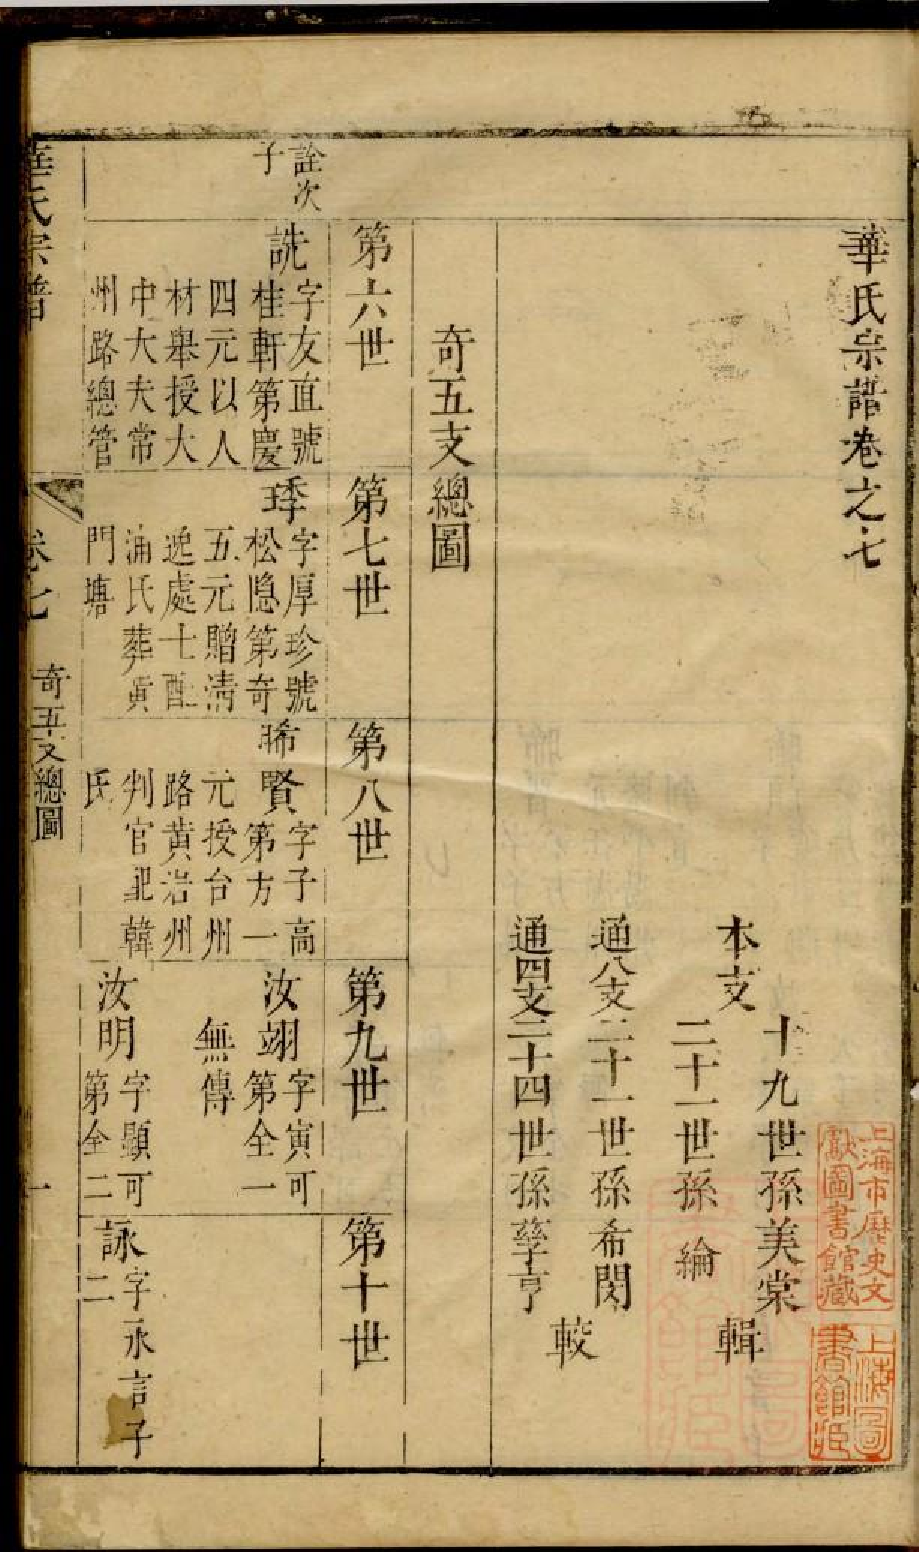 華氏宗譜卷之七
本支
十九世孫美棠
二十一世孫綸
輯
通八支二十一世孫希閔
通四支二十四世孫孳亨
較
奇五支總圖
第六世
第七世
第八世
第九世
第十世
詮次
子
詵
字友直號
桂軒第慶
四元以人
材舉授大
中大夫常
州路總管
琇
字厚珍號
松隱第奇
五元贈淸
逸處士配
浦氏葬寅
門塘
晞賢
字子高
第方一
元授台州
路黃岩州
判官配韓
氏
汝翊
字寅可
第全一
無傳
汝明
字顯可
第全二
詠
字永言子
二
華氏宗譜
卷七
奇五支總圖
一
上海市歷史文
獻圖書館藏
上海圖
書館藏